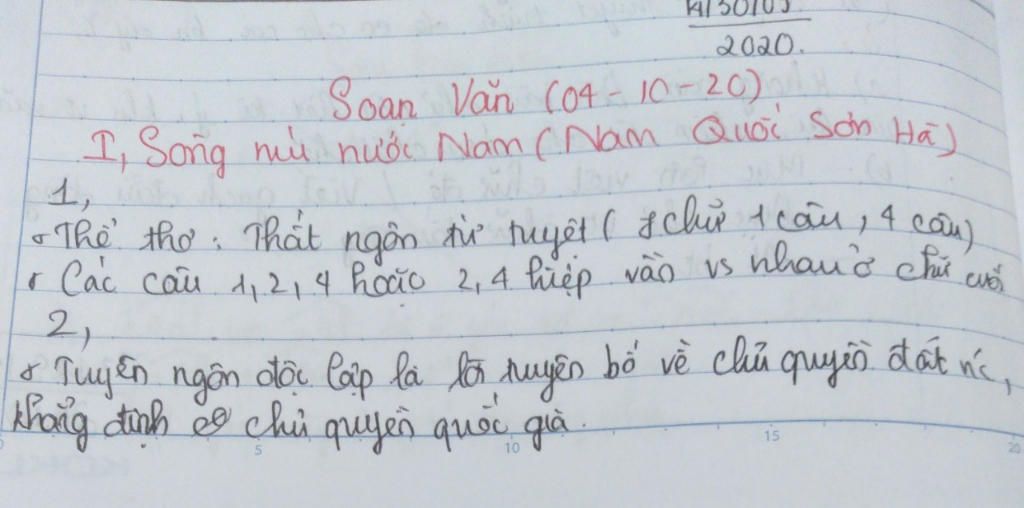 2020.
Soạn Văn (04-10-20)
I, Sông núi nước Nam (Nam Quốc Sơn Hà)
1,
Thể thơ: Thất ngôn tứ tuyệt (7 chữ 1 câu, 4 câu)
Các câu 1, 2, 4 hoặc 2, 4 hiệp vần vs nhau ở chữ cuối
2,
Tuyên ngôn độc lập là lời tuyên bố về chủ quyền đất nc,
khẳng định chủ quyền quốc gia.
5 10 15 20